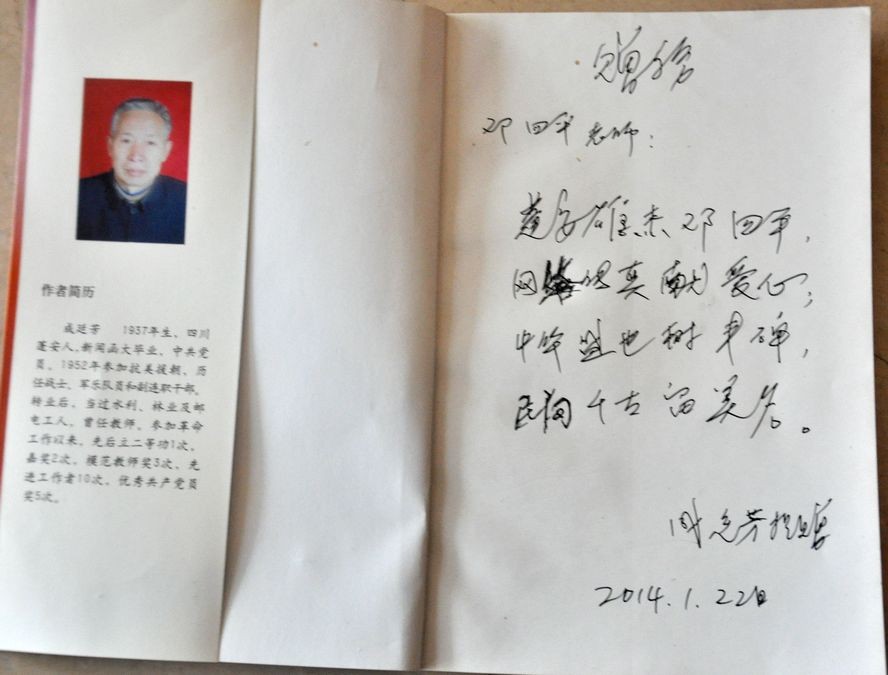 作者简历
成廷芳 1937年生，四川
蓬安人，新闻函大毕业，中共党
员，1952年参加抗美援朝，历
任战士、军乐队员和副连职干部。
转业后，当过水利、林业及邮
电工人，曾任教师。参加革命
工作以来，先后立二等功1次，
嘉奖2次，模范教师奖3次，先
进工作者10次，优秀共产党员
奖5次。
赠给
邓四平老师：
雄杰邓四平，
网 真献爱心；
中华 地树丰碑，
民间千古留美名。
芳 赠
2014.1.22日